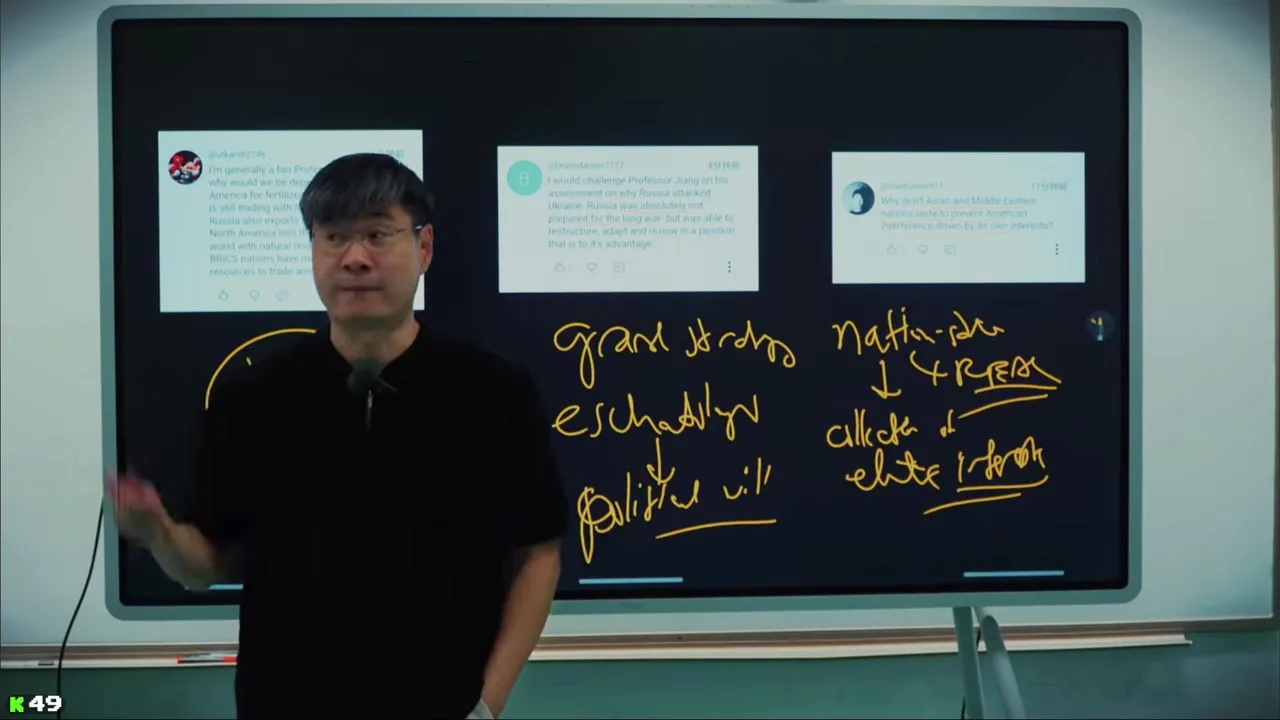 @utkarsh2746
I'm generally a fan Profe
why would we be dep
America for fertilize
is still trading with
Russia also exports
North America isn't th
world with natural res
BRICS nations have m
resources to trade am
B
4分钟前
I would challenge Professor Jiang on his
assessment on why Russia attacked
Ukraine. Russia was absolutely not
prepared for the long war- but was able to
restructure, adapt and is now in a position
that is to it's advantage
11分钟前
Why don't Asian and Middle Eastern
nations unite to prevent American
interference driven by its own interests?
grand strategy
eschatology
political will
nation-state
collection of
elite interests
K 49